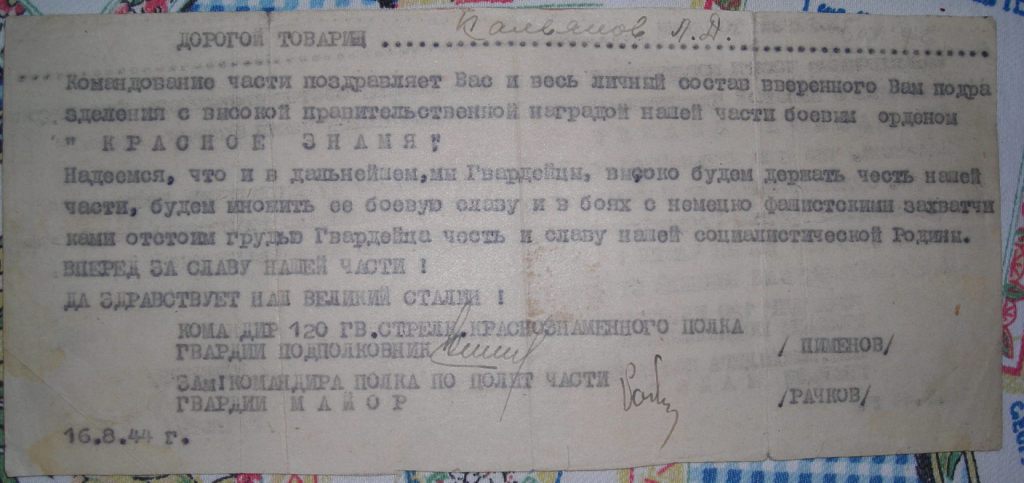 ДОРОГОЙ ТОВАРИЩ .................. Л. Д.
Командование части поздравляет Вас и весь личный состав вверенного Вам подра
зделения с высокой правительственной наградой нашей части боевым орденом
" КРАСНОЕ ЗНАМЯ"
Надеемся, что и в дальнейшем,мы Гвардейцы, высоко будем держать честь нашей
части, будем множить ее боевую славу и в боях с немецко фашистскими захватчи
ками отстоим грудью Гвардейца честь и славу нашей социалистической Родины.
ВПЕРЕД ЗА СЛАВУ НАШЕЙ ЧАСТИ !
ДА ЗДРАВСТВУЕТ НАШ ВЕЛИКИЙ СТАЛИН !
КОМА ДИР 120 ГВ.СТРЕЛК.КРАСНОЗНАМЕННОГО ПОЛКА
ГВАРДИИ ПОДПОЛКОВНИК / ПИМЕНОВ/
ЗАМ!КОМАНДИРА ПОЛКА ПО ПОЛИТ ЧАСТИ
ГВАРДИИ МАЙОР /РАЧКОВ/
16.8.44 г.